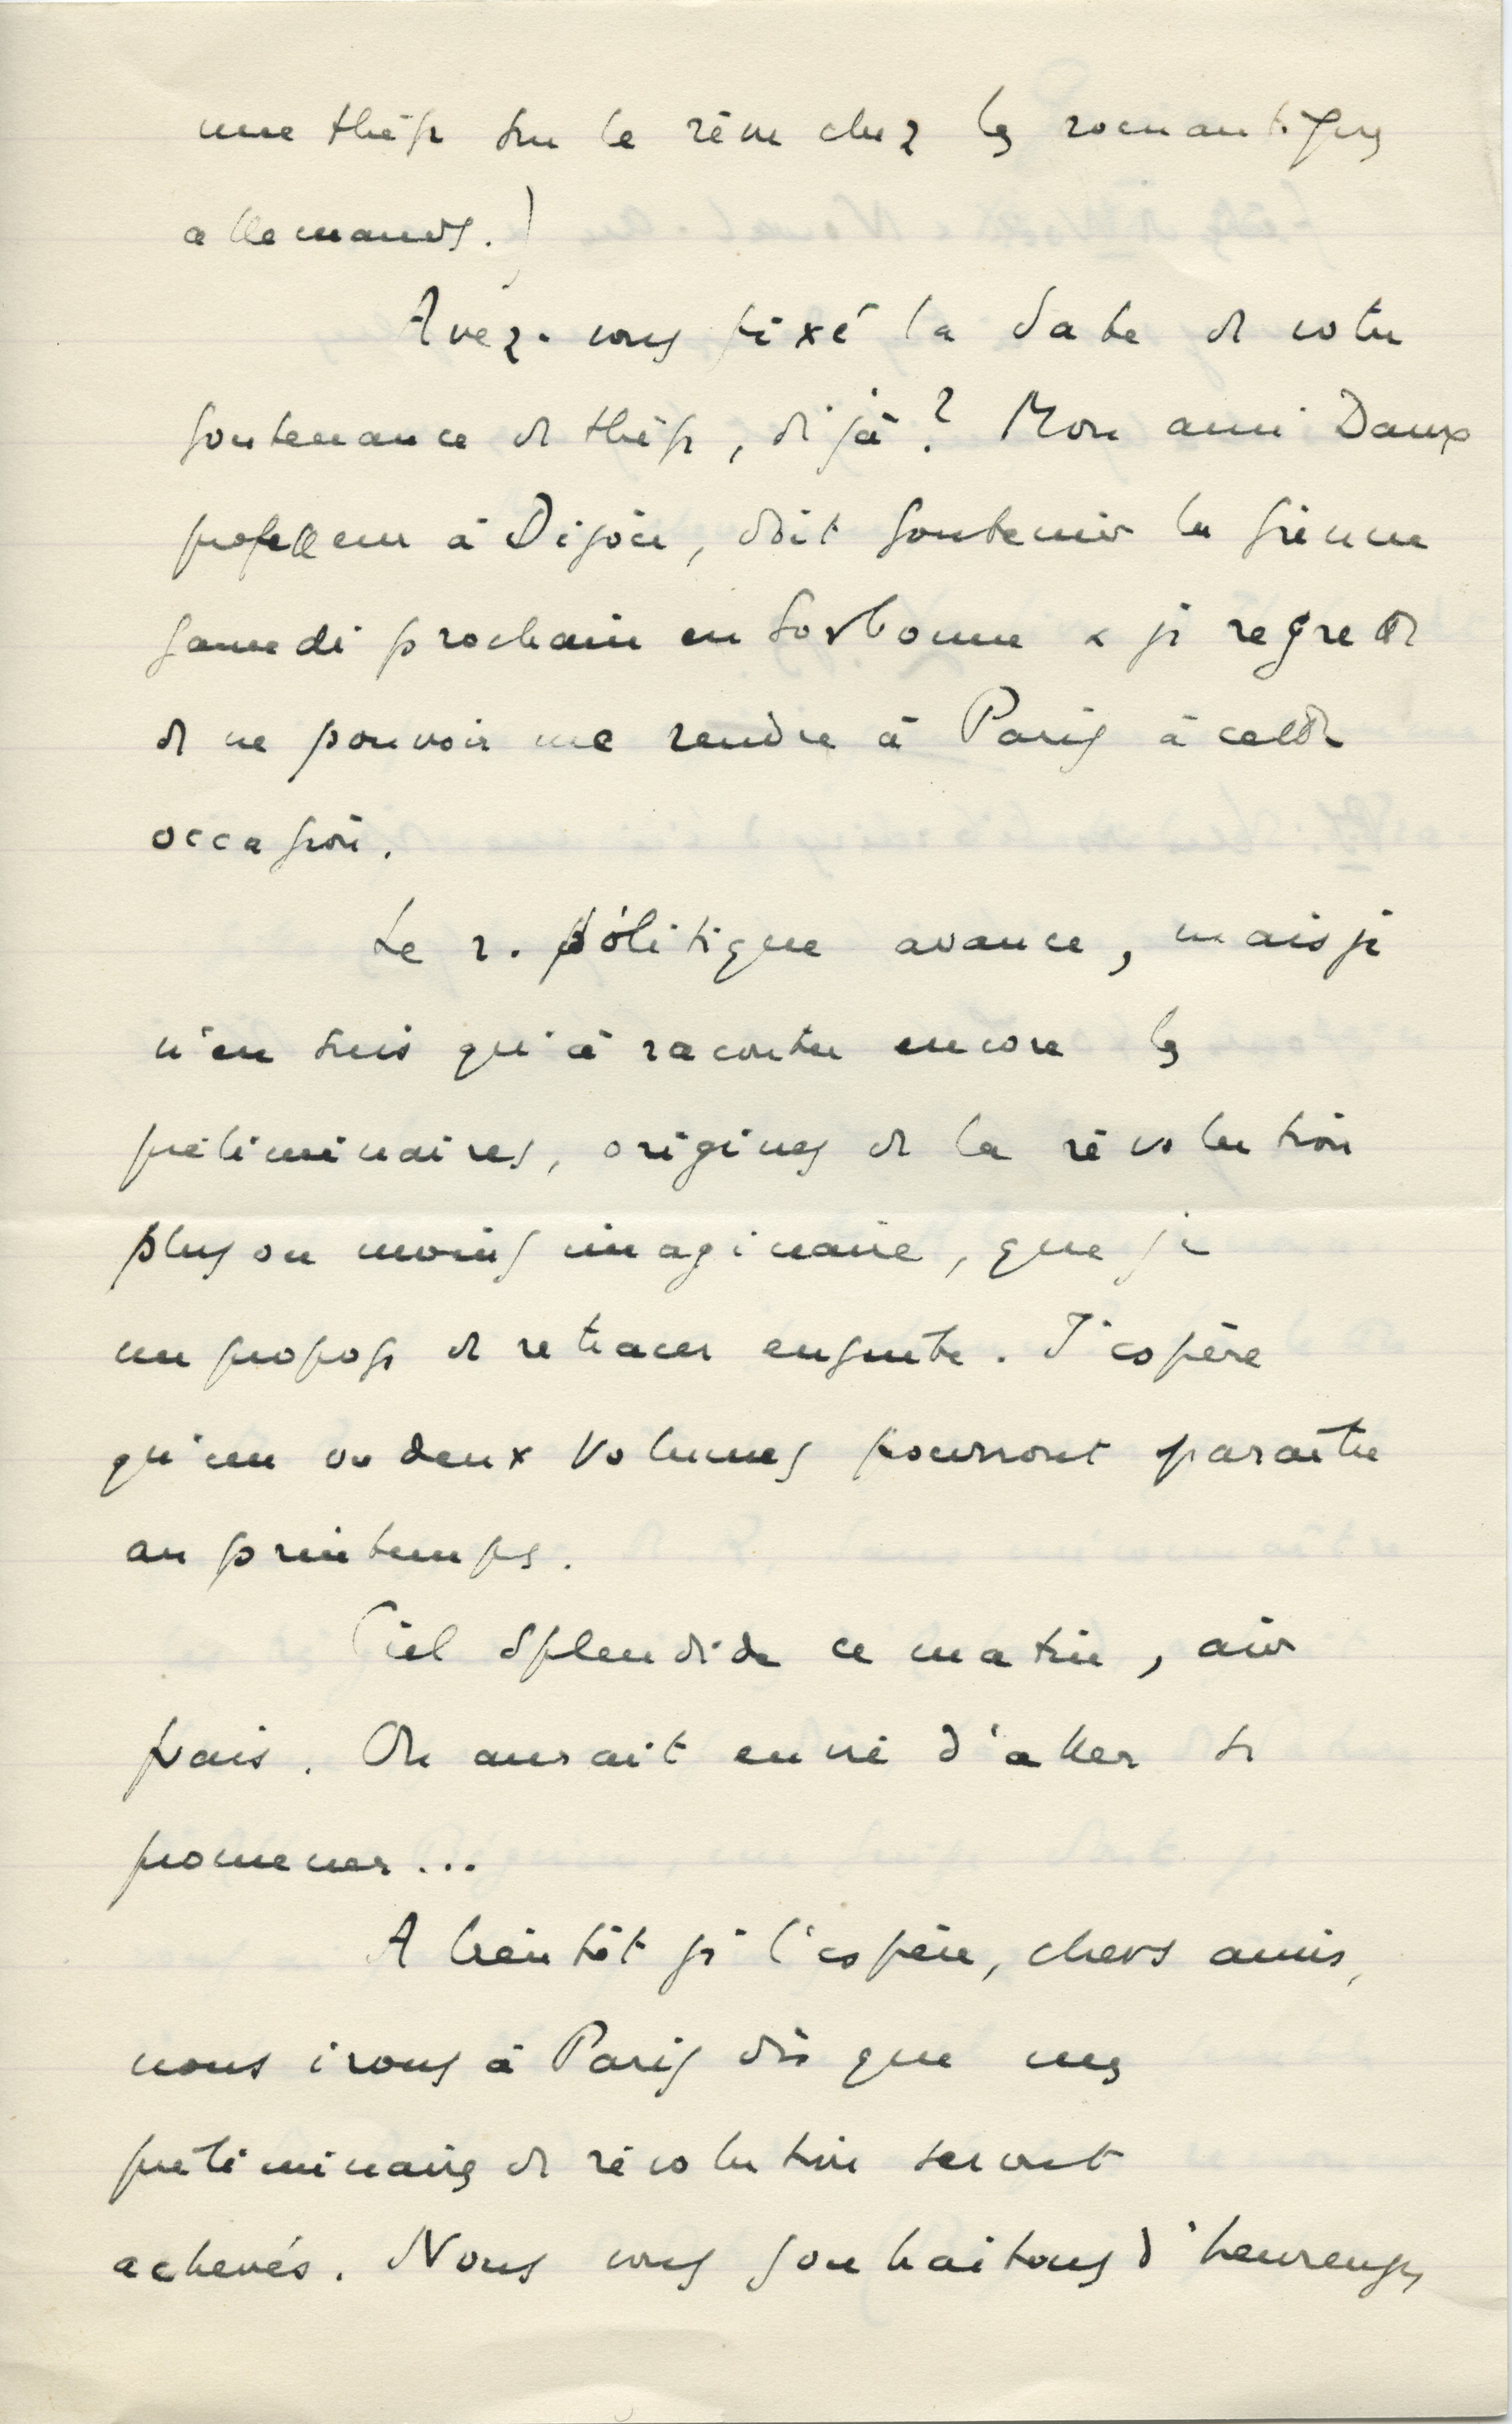 une thèse sur le rêve chez les romantiques
allemands.)
Avez-vous fixé la date de votre
soutenance de thèse, déjà ? Mon ami Daux
professeur à Dijon, doit soutenir la sienne
samedi prochain en Sorbonne & je regrette
de ne pouvoir me rendre à Paris à cette
occasion.
Le r. politique avance, mais je
n'en suis qu'à raconter encore les
préliminaires, origines de la révolution
plus ou moins imaginaire, que je
me propose de retracer ensuite. J'espère
qu'un ou deux volumes pourront paraître
au printemps.
Ciel splendide ce matin, air
frais. On aurait envie d'aller se
promener...
A bientôt je l'espère, chers amis,
nous irons à Paris dès que mes
préliminaires de révolution seront
achevés. Nous vous souhaitons d'heureuses